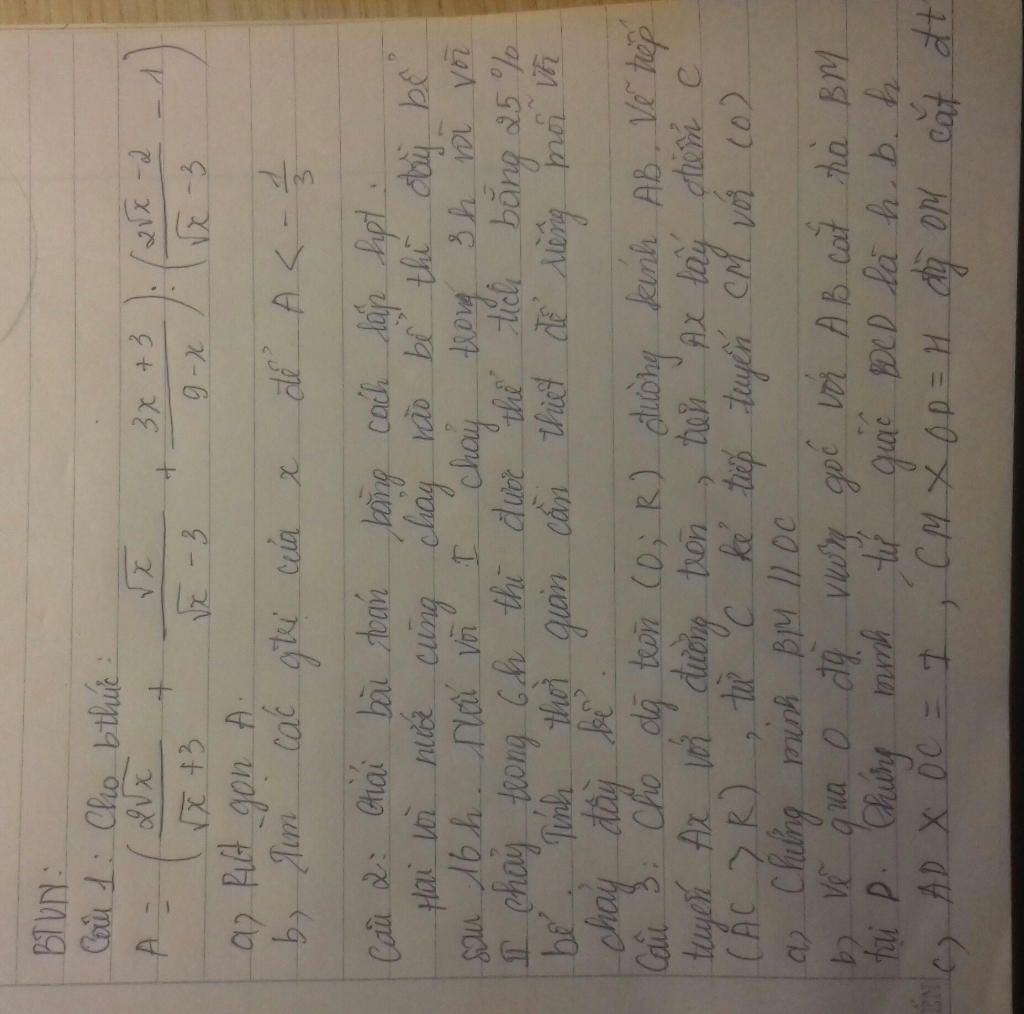 BTVN:
Câu 1: Cho bthức:
A = (2√x / (√x + 3) + √x / (√x - 3) + (3x + 3) / (9 - x)) : ((2√x - 2) / (√x - 3) - 1)
a, Rút gọn A.
b, Tìm các gtri của x để A < - 1/3
Câu 2: Giải bài toán bằng cách lập hpt.
Hai vòi nước cùng chảy vào bể thì đầy bể
sau 16h. Nếu vòi I chảy trong 3h vòi
II chảy trong 6h thì được thể tích bằng 25%
bể. Tính thời gian cần thiết để riêng mỗi vòi
chảy đầy bể.
Câu 3: Cho đg tròn (O; R) đường kính AB. Vẽ tiếp
tuyến Ax với đường tròn, trên Ax lấy điểm C
(AC > R), từ C kẻ tiếp tuyến CM với (O)
a, Chứng minh BM // OC
b, Vẽ qua O đg vuông góc với AB cắt tia BM
tại D. Chứng minh tứ giác BOCD là h.b.h
c, AD X OC = I, CM X OD = H đg OM cắt đt